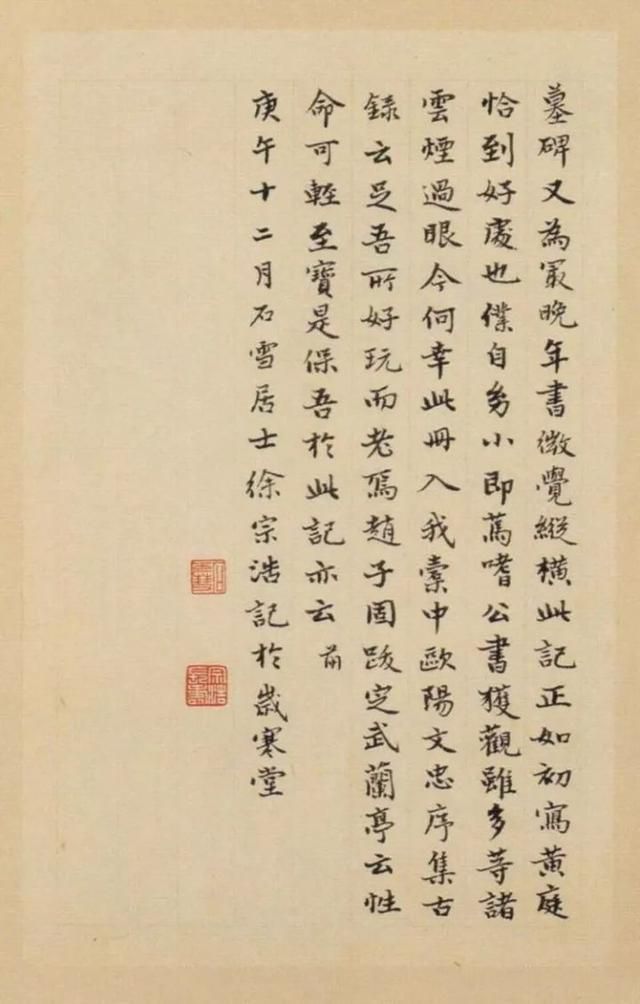 墓碑又為冣晚年書微覺縱橫此記正如初寫黃庭
恰到好處也僕自幼小即篤嗜公書獲觀雖多等諸
雲煙過眼今何幸此冊入我橐中歐陽文忠序集古
錄云足吾所好玩而老焉趙子固跋定武蘭亭云性
命可輕至寶是保吾於此記亦云 前
庚午十二月石雪居士徐宗浩記於歲寒堂